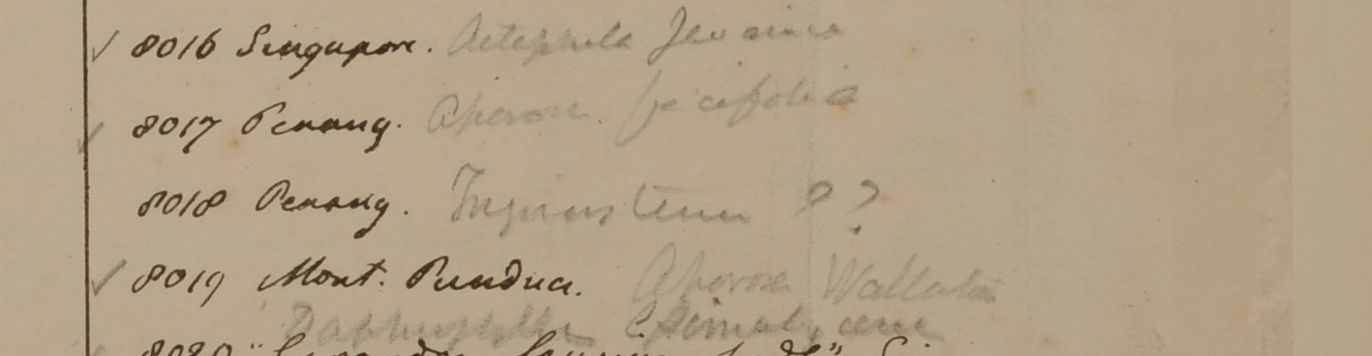 ✓ 8016 Singapore. Actephila Javanica
✓ 8017 Penang. Aporosa ficifolia
8018 Penang. ? ?
✓ 8019 Mont. Pundua. Aporosa Wallich
Daphniphyllum
8020